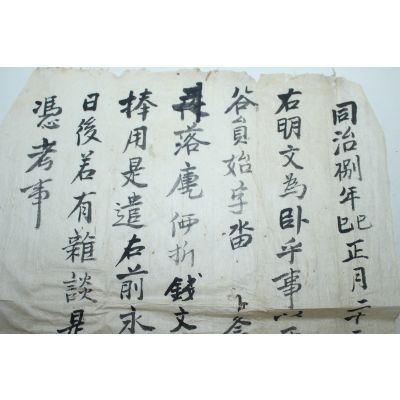 同治捌年己巳正月二十
右明文為臥乎事
谷員始字畓
落庫価折錢文
捧用是遣右前永
日後若有雜談是
憑考事